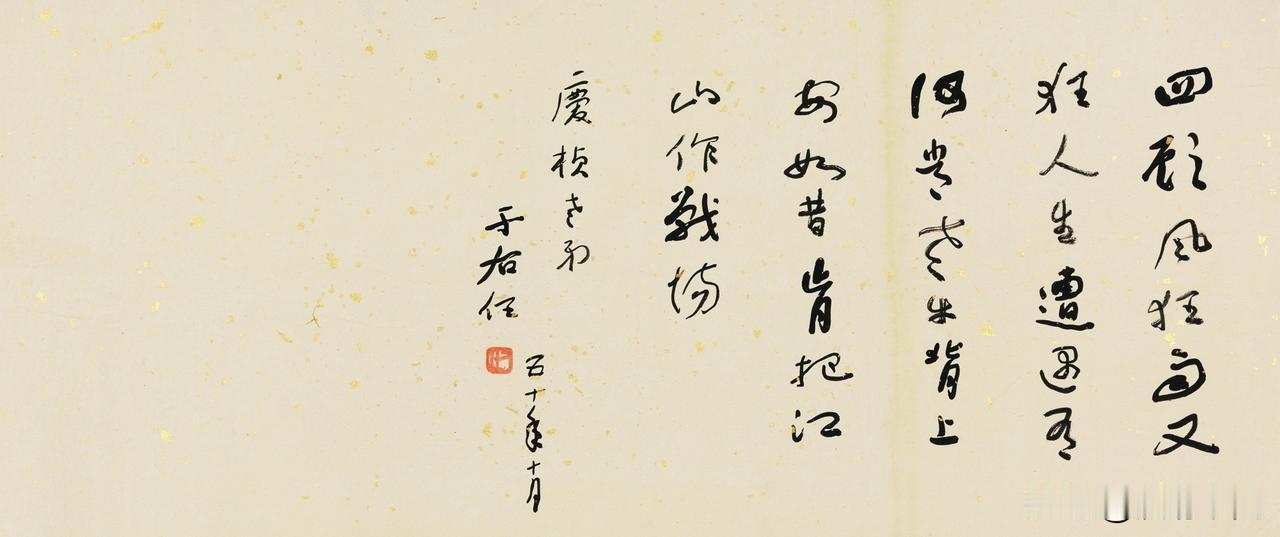 四顧風狂雨又
狂人生遭遇有
何常老牛背上
安如昔肯把江
山作戰場
慶楨老弟
于右任
五十年十月